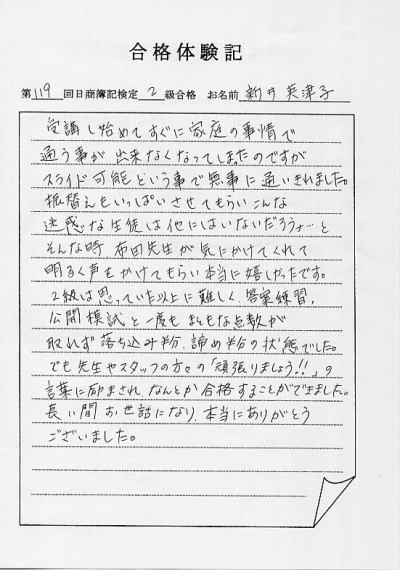 合格体験記
第119回日商簿記検定2級合格 お名前 新井英津子
受講し始めてすぐに家庭の事情で
通う事が出来なくなってしまったのですが
スライド可能という事で無事に通いきれました。
振替えもいっぱいさせてもらいこんな
迷惑な生徒は他にはいないだろうナ…と
そんな時 布田先生が気にかけてくれて
明るく声をかけてもらい本当に嬉しかったです。
2級は思っていた以上に難しく、答案練習、
公開模試と一度もまともな点数が
取れず落ち込み半分、諦め半分の状態でした。
でも先生やスタッフの方々の「頑張りましょう!!」の
言葉に励まされ、なんとか合格することができました。
長い間お世話になり、本当にありがとう
ございました。